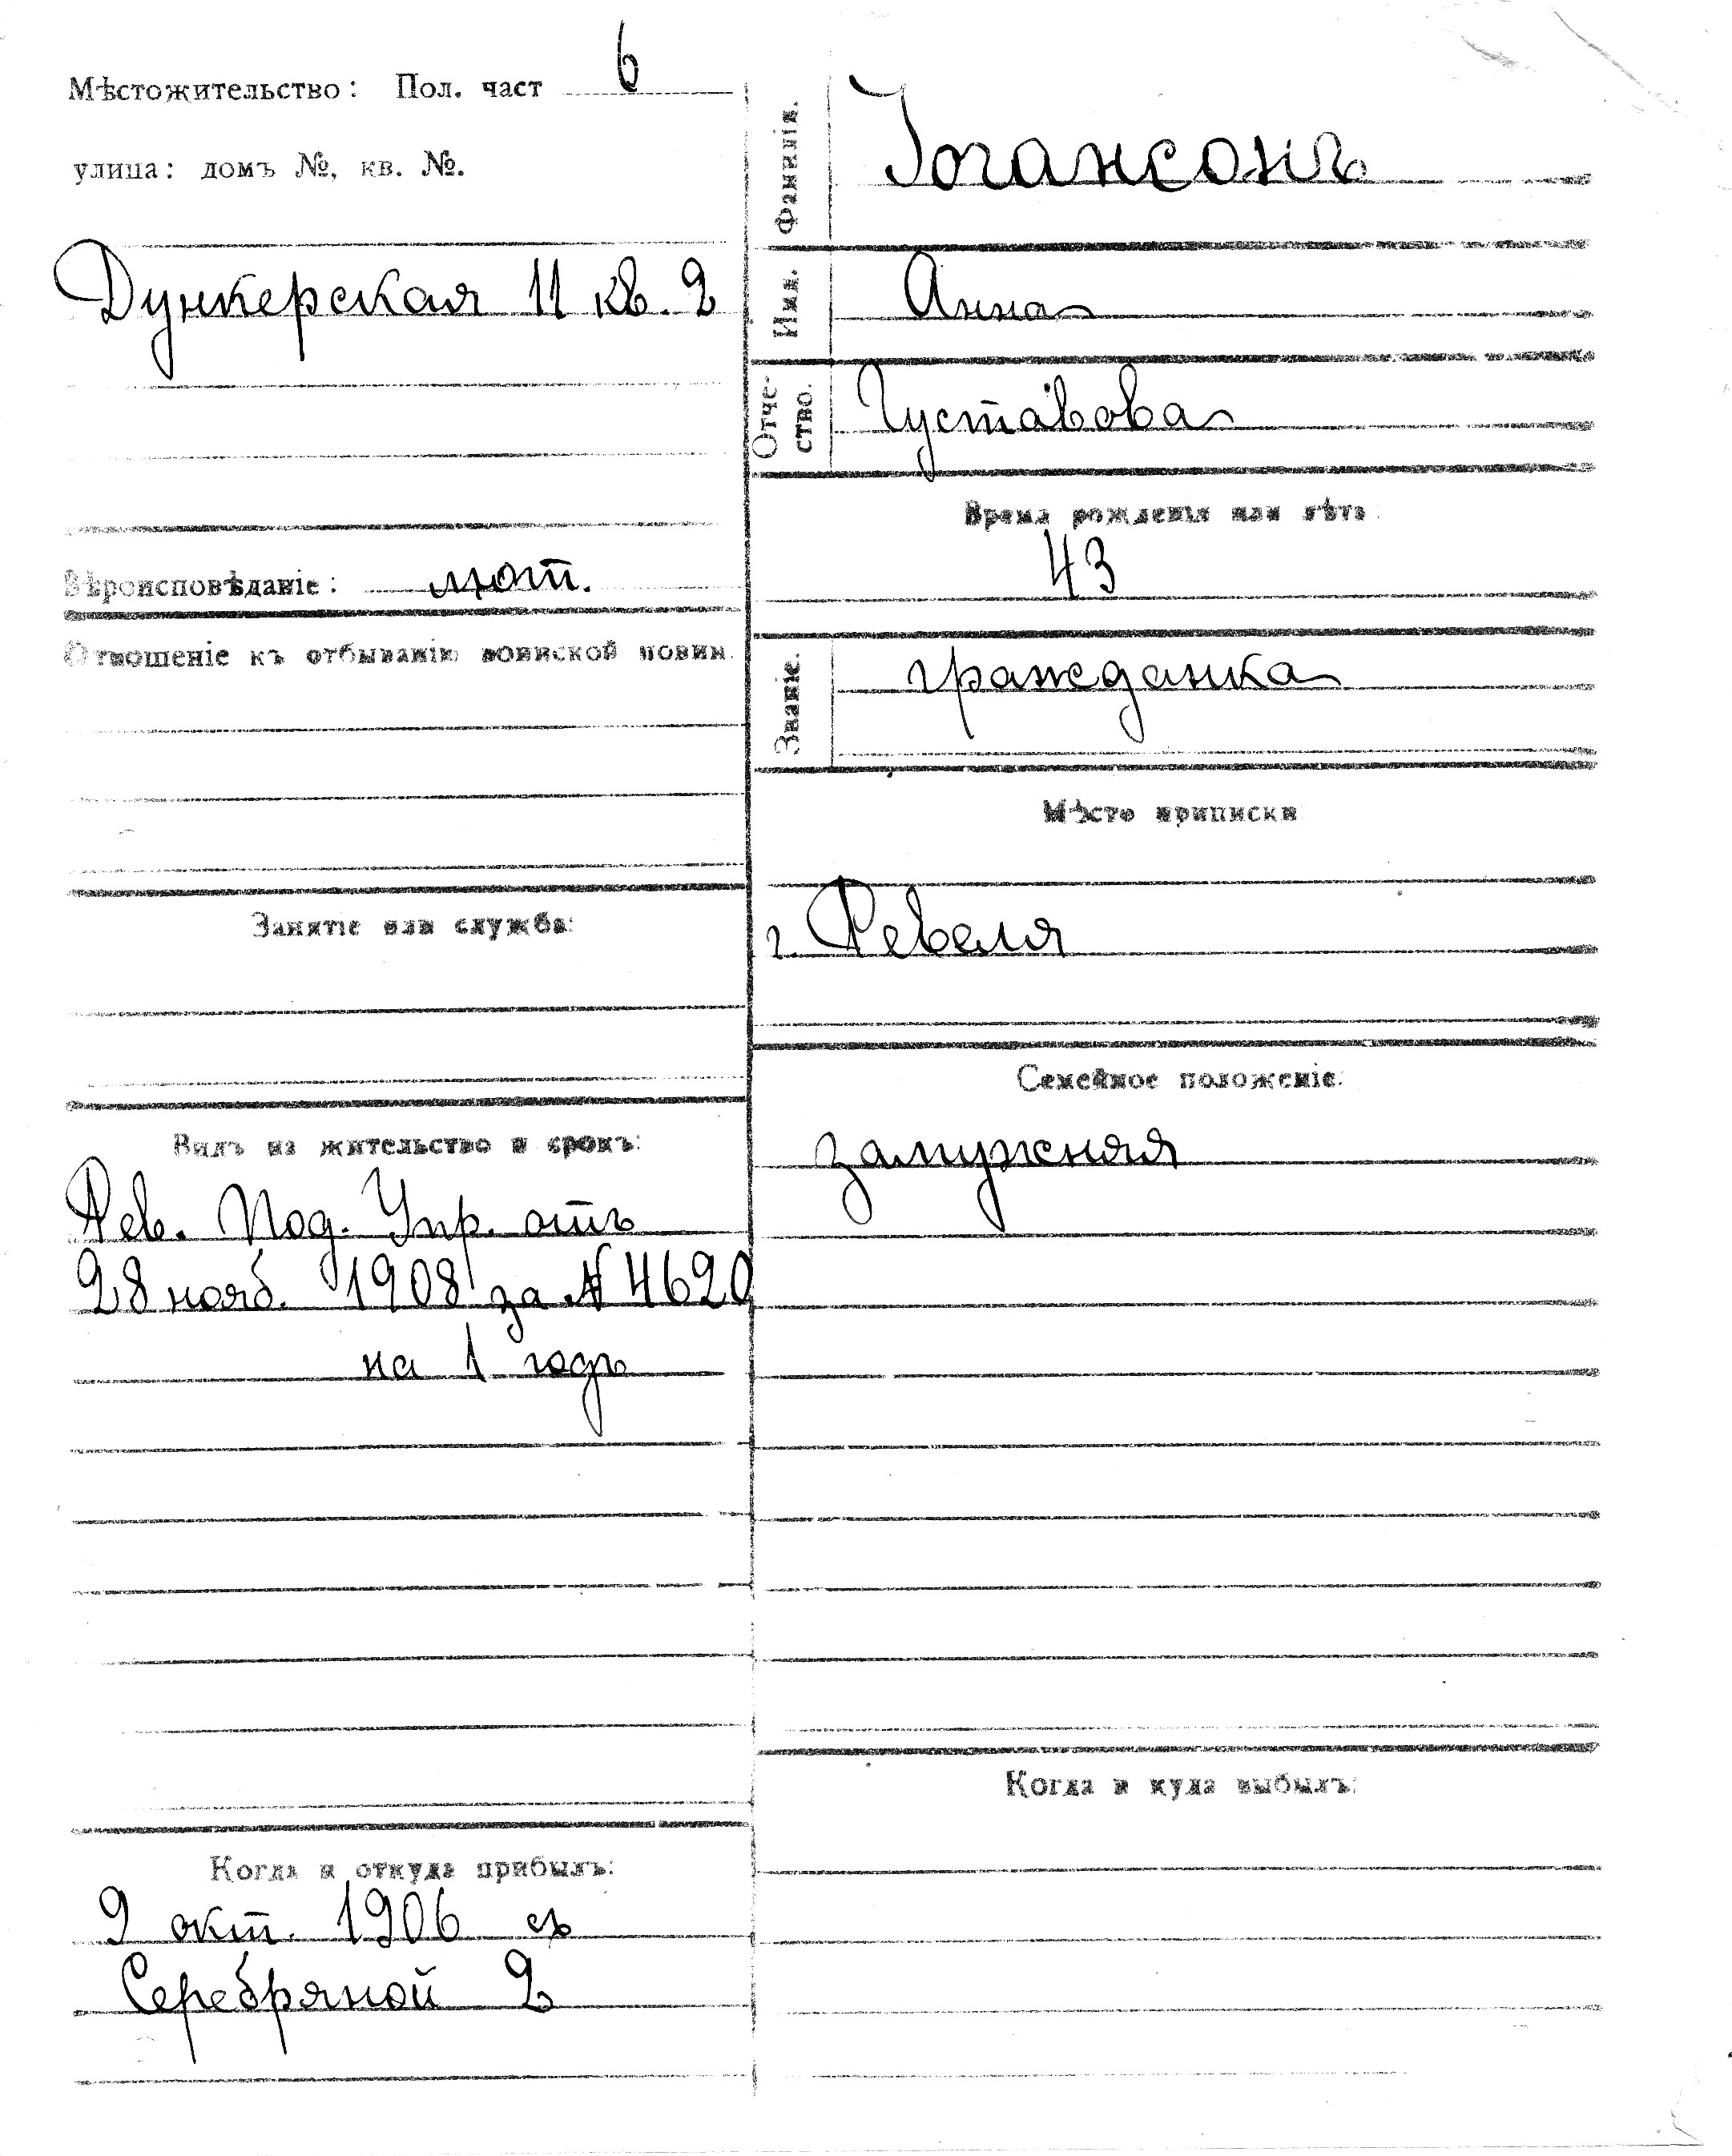 Мѣстожительство: Пол. част 6
улица: домъ №, кв. №.
Дункерская 11 кв. 2
Вѣроисповѣданіе: лют.
Отношеніе къ отбыванію воинской повин.
Занятіе или служба:
Видъ на жительство и срокъ:
Рев. Под. Упр. отъ
28 нояб. 1908 за № 4620
на 1 годъ
Когда и откуда прибылъ:
9 окт. 1906 съ
Серебряной 2
Фамилія. Іогансонъ
Имя. Анна
Отче-
ство. Густавова
Время рожденія или лѣта
43
Званіе. гражданка
Мѣсто приписки
г. Ревеля
Семейное положеніе:
замужняя
Когда и куда выбылъ: